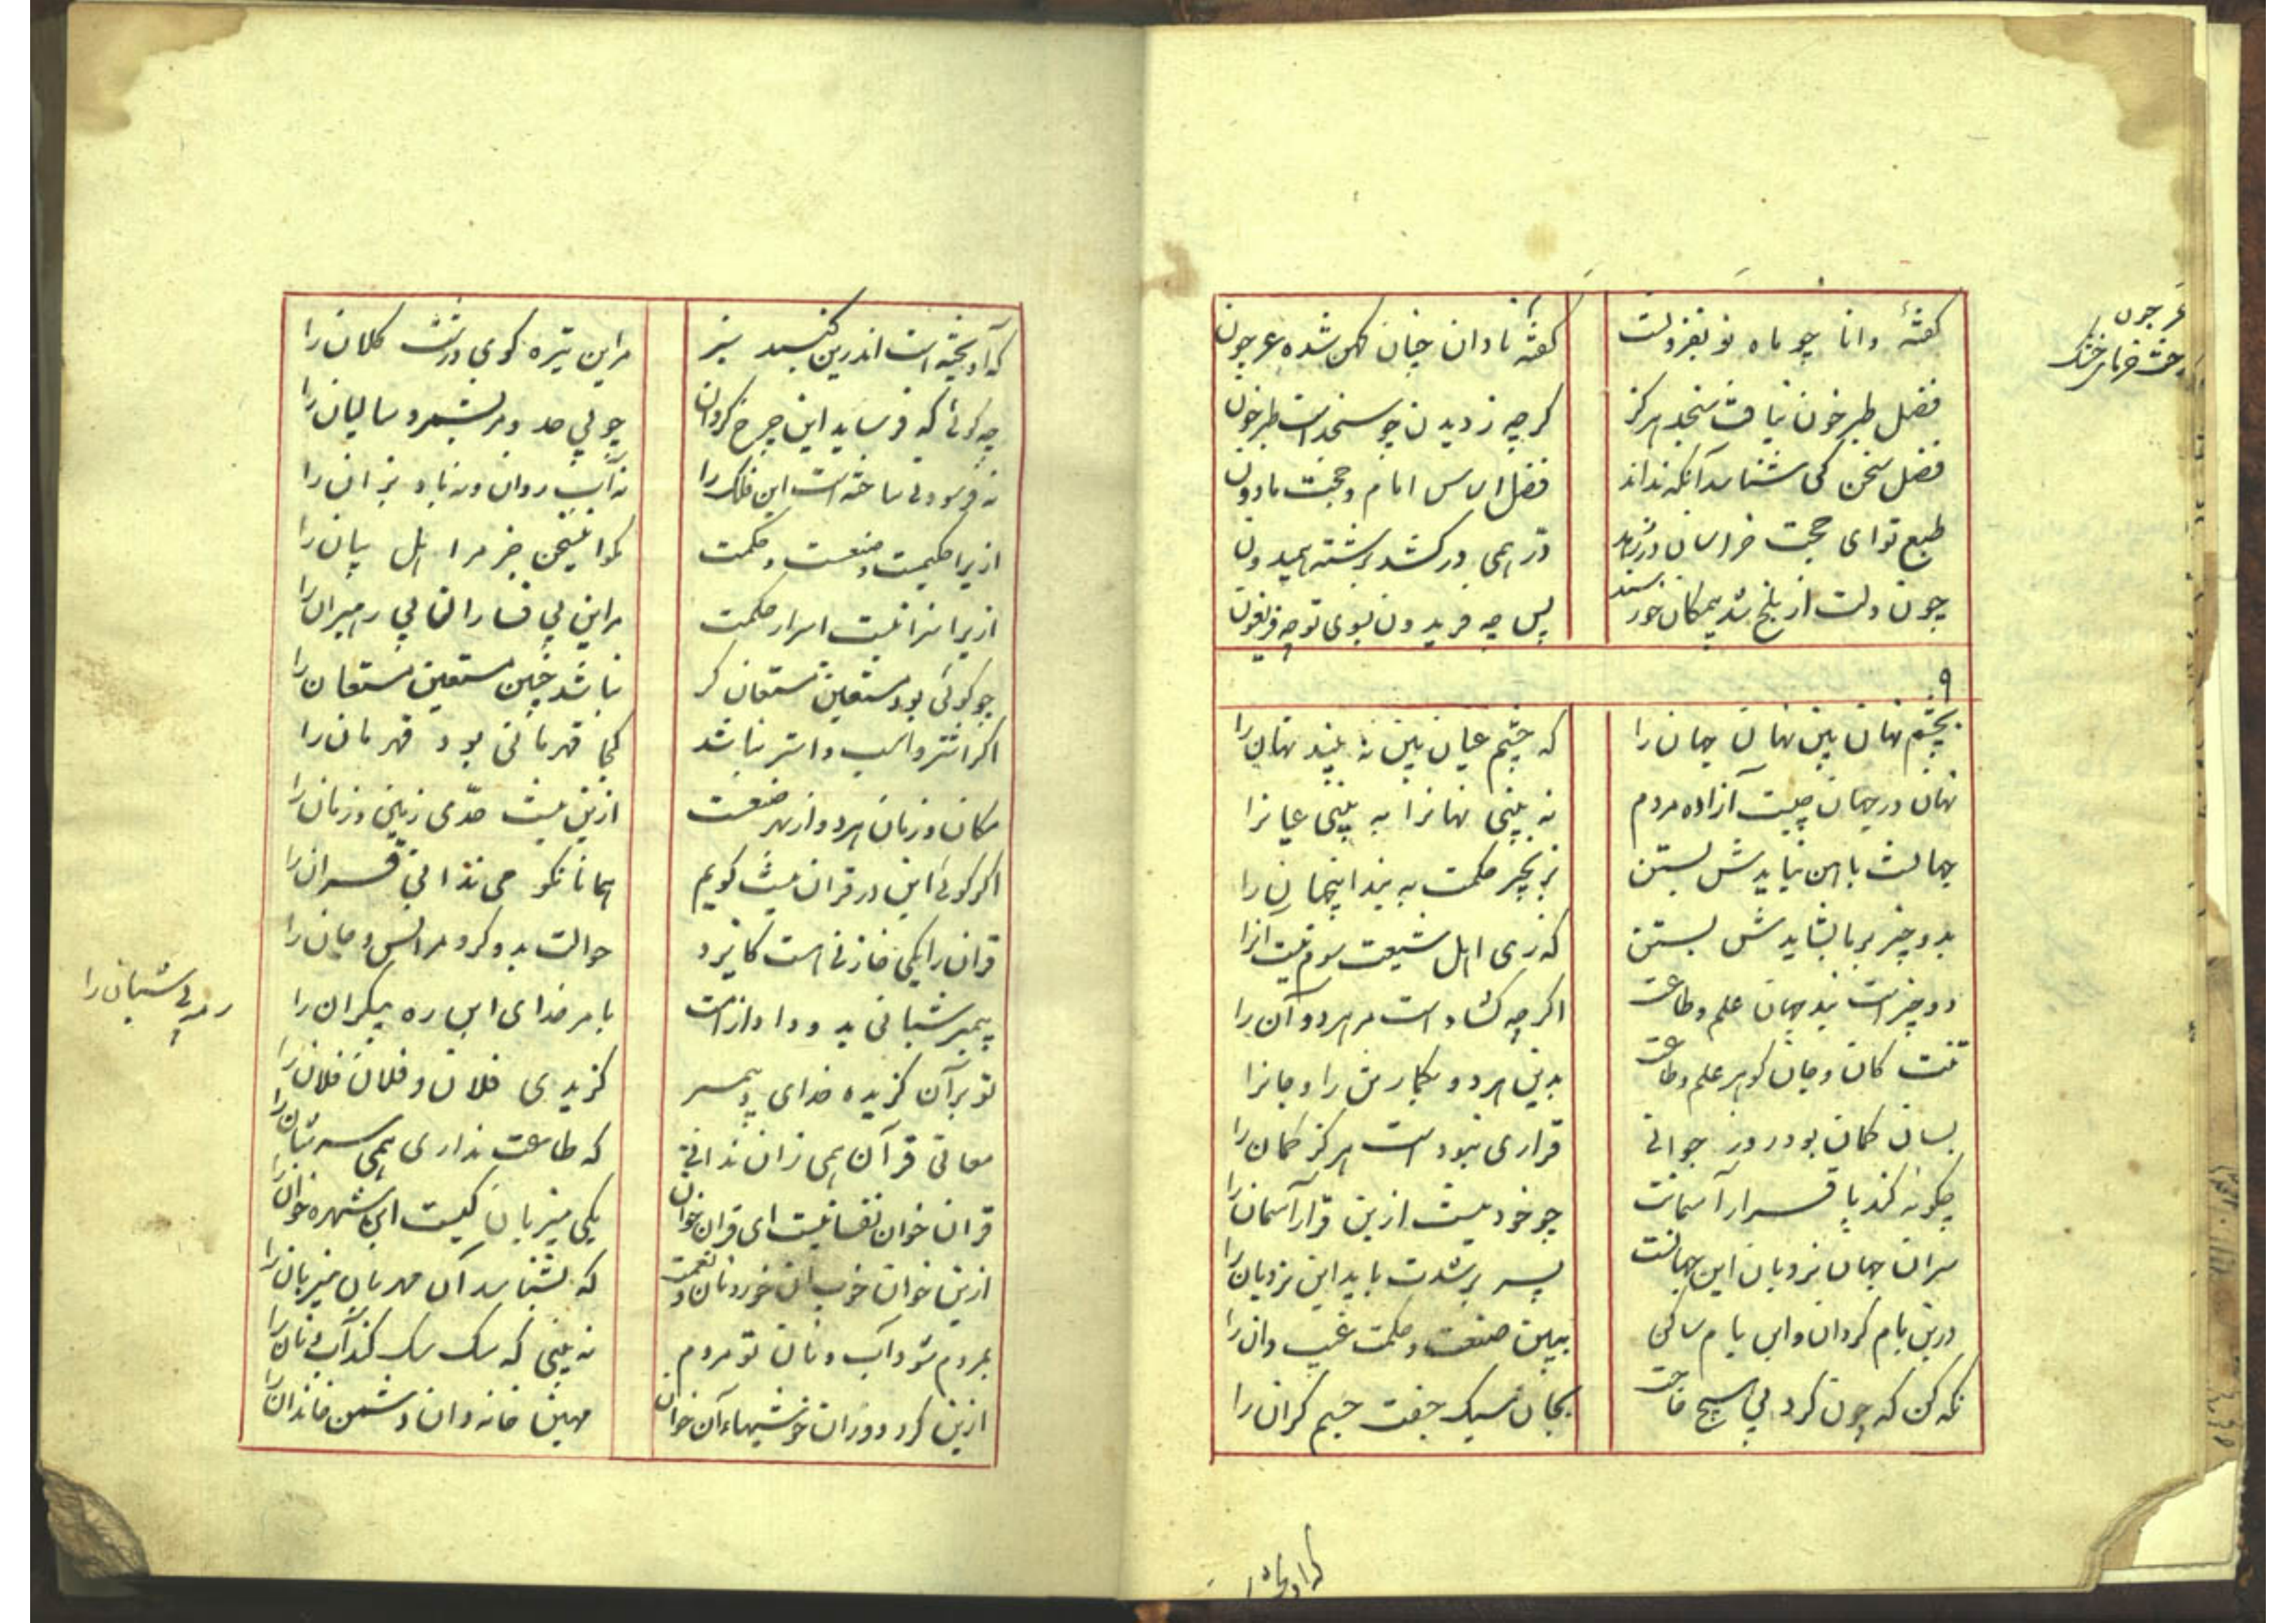 عرجون
خرمای خشک
گفتهٔ دانا چو ماه نو بفزونست
گفتهٔ نادان چنان کهن شده عرجون
فضل طبرخون نیافت سنجد هرگز
گرچه ز دیدن چو سنجد است طبرخون
فضل سخن کی شناسد آنکه نداند
فضل اساس امام و حجت مأذون
طبع تو ای حجت خراسان در زهد
در همی در کشد برشته همیدون
چون دلت از بلخ شد بیمکان خورسند
پس چه فریدون بسوی تو چه فریغون
۹
بچشم نهان بین نهان جهان را
که چشم عیان بین نه بیند نهان را
نهان در جهان چیست آزاده مردم
نه بینی نهانرا به بینی عیانرا
جهانت باهن نبایدش بستن
بزنجیر حکمت به بند اینجهان را
بدو چیز بر بایدش بستن
که زی اهل شیعت سوم نیست آنرا
دو چیز است بند جهان علم و طاعت
اگر چه گشاد است مر هر دوان را
تنت کان و جان گوهر علم و طاعت
بدین هر دو بگمار تن را و جانرا
بسان گمان بود روز جوانی
قراری نبود است هرگز گمان را
چگونه کند با قرار آسمانت
چو خود نیست ازین قرار آسمان را
سرای جهان نردبان این جهانست
بسر برشدت باید این نردبان را
درین بام گردان و این بام ساکن
ببین صنعت و حکمت غیب دان را
نگه کن که چون کرد بی هیچ حاجت
بجان سبک جفت جسم گران را
که آویخته است اندرین گنبد سبز
مر این تیره گوی درشت کلان را
چه گوئی که فرساید این چرخ گردان
چو بی حد و مر بشمرد سالیان را
نه فرسودنی ساخته است این فلک را
نه آب روان و نه باد بزان را
ازیرا حکیمست و صنعت و حکمت
مگو این سخن جز مر اهل بیان را
ازیرا سزا نیست اسرار حکمت
مر این بی فساران بی رهبران را
چو گوئی بود مستعین مستعان گر
نباشد چنین مستعین مستعان را
اگر اشتر و اسب و استر نباشد
کجا قهرمانی بود قهرمان را
مکان و زمان هر دو از بهر صنعت
ازین نیست حدی زمین و زمان را
اگر گوئی این در قران نیست گویم
همانا نکو می ندانی قران را
قران را یکی خازنی است کایزد
حوالت بدو کرد مر انس و جان را
پیمبر شبانی بدو داد از امت
بامر خدای این رمه بیکران را
رمه بی شبان را
تو بر آن گزیده خدای و پیمبر
گزیدی فلان و فلان فلان را
معانی قرآن همی زان ندانی
که طاعت نداری همی سر شبان را
قران خوان نفسانیست ای قران خوان
یکی میزبان کیست این شهره خوان را
ازین خوان خوب آن خورد نان و نعمت
که بشناسد آن مهربان میزبان را
بمردم شود آب و نان تو مردم
نه بینی که سگ سگ کند آب و نان را
ازین کرد دور از خورشهاء آن خوان
مهین خانه دان دشمن خاندان را